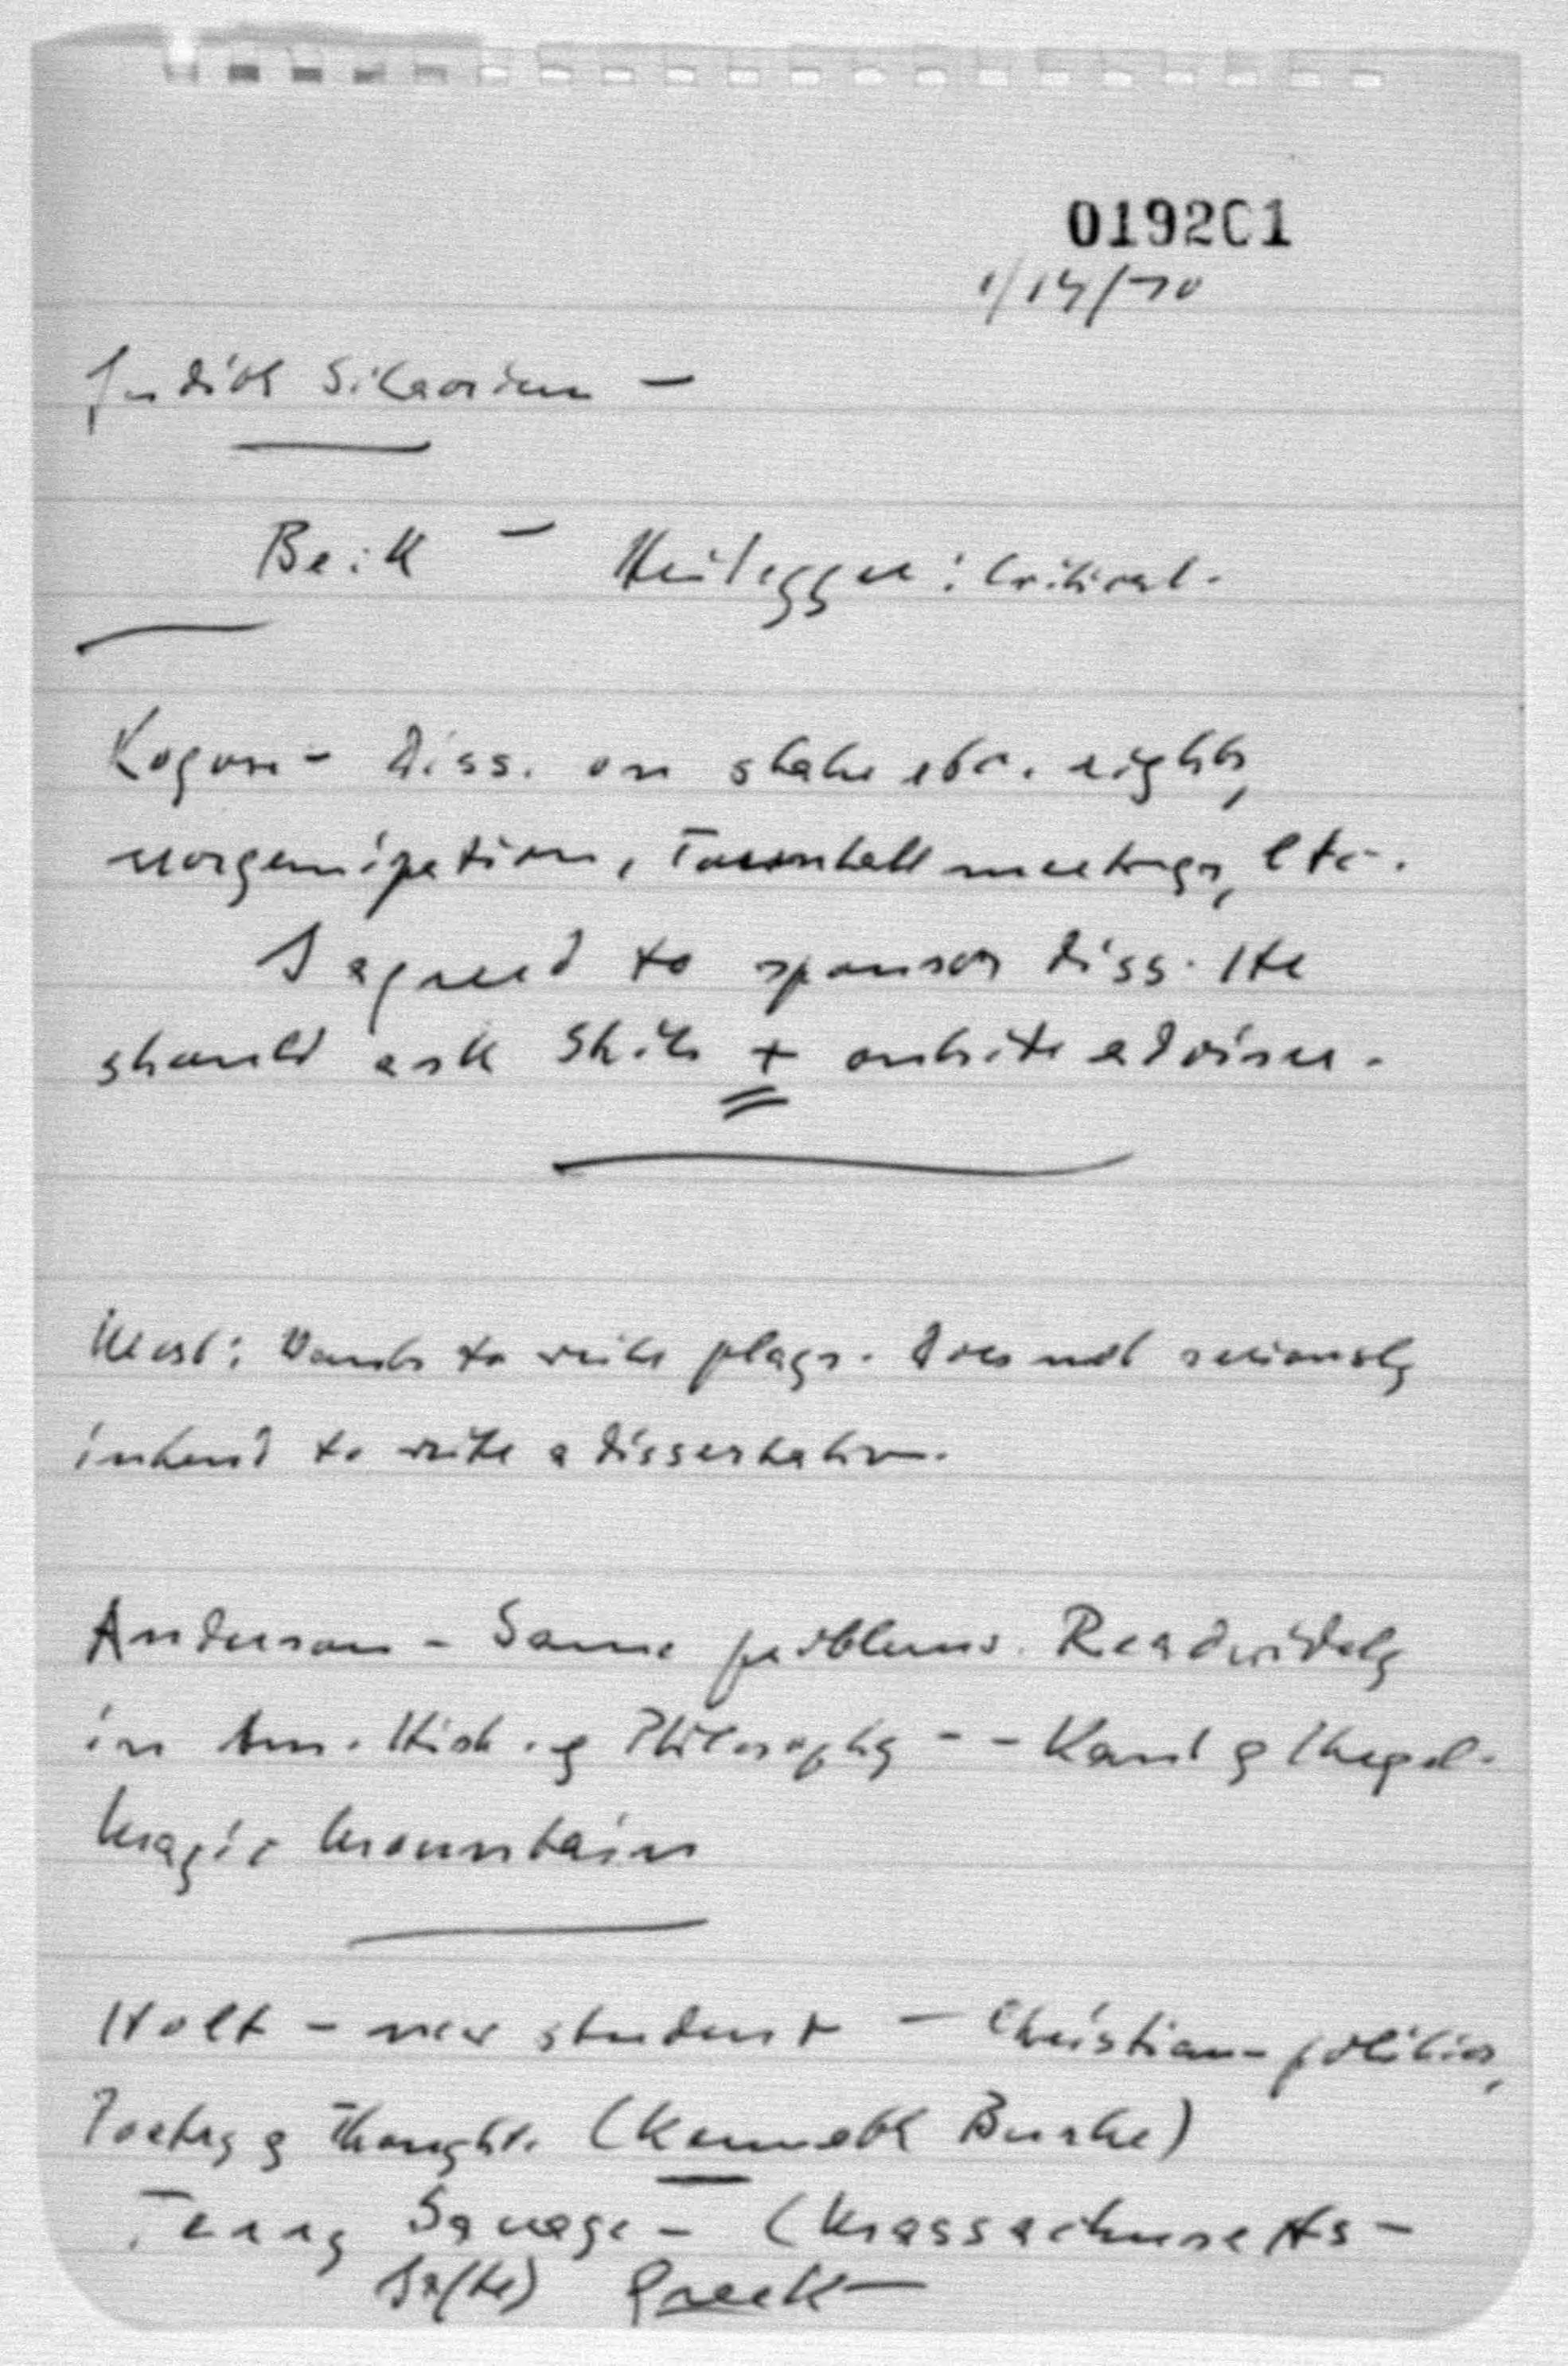 019201
1/14/70
Judith
Beik - Heidegger: Critical.
Kogon - Diss. on state etc. rights,
reorganization, Townhall meetings, etc.
I agreed to sponsor diss. He
should ask Shils + outside adviser.
West: Wants to write plays. Does not seriously
intend to write a dissertation.
Anderson - Same problems. Read widely
in Am. Hist. & Philosophy -- Kant & Hegel.
Magic Mountain
Holt - new student - Christian politics,
Poetry & Thought. (Kenneth Burke)
Terry Savage - (Massachusetts -
Greek -